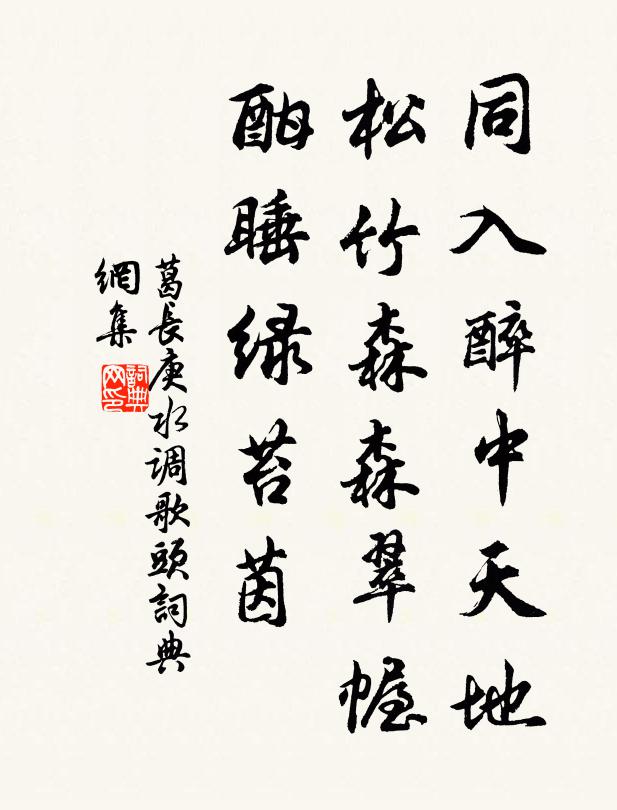 同入醉中天地
松竹森森翠幄
酣睡绿苔茵
葛長庚水调歌頭詞典
網集
詞典网印